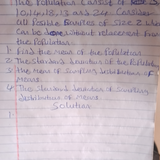 1 The Population Consist of
10, 14, 18, 13 and 24. Consider
all Possible Samples of Size 2
Can be drawn without replacement From
the Population.
1. Find the Mean of the Population
2. The Standard Deviation of the
3. the Mean of Sampling Distribution of
Means
4. The Standard Deviation of Sampling
distribution of Means
Solution
1.